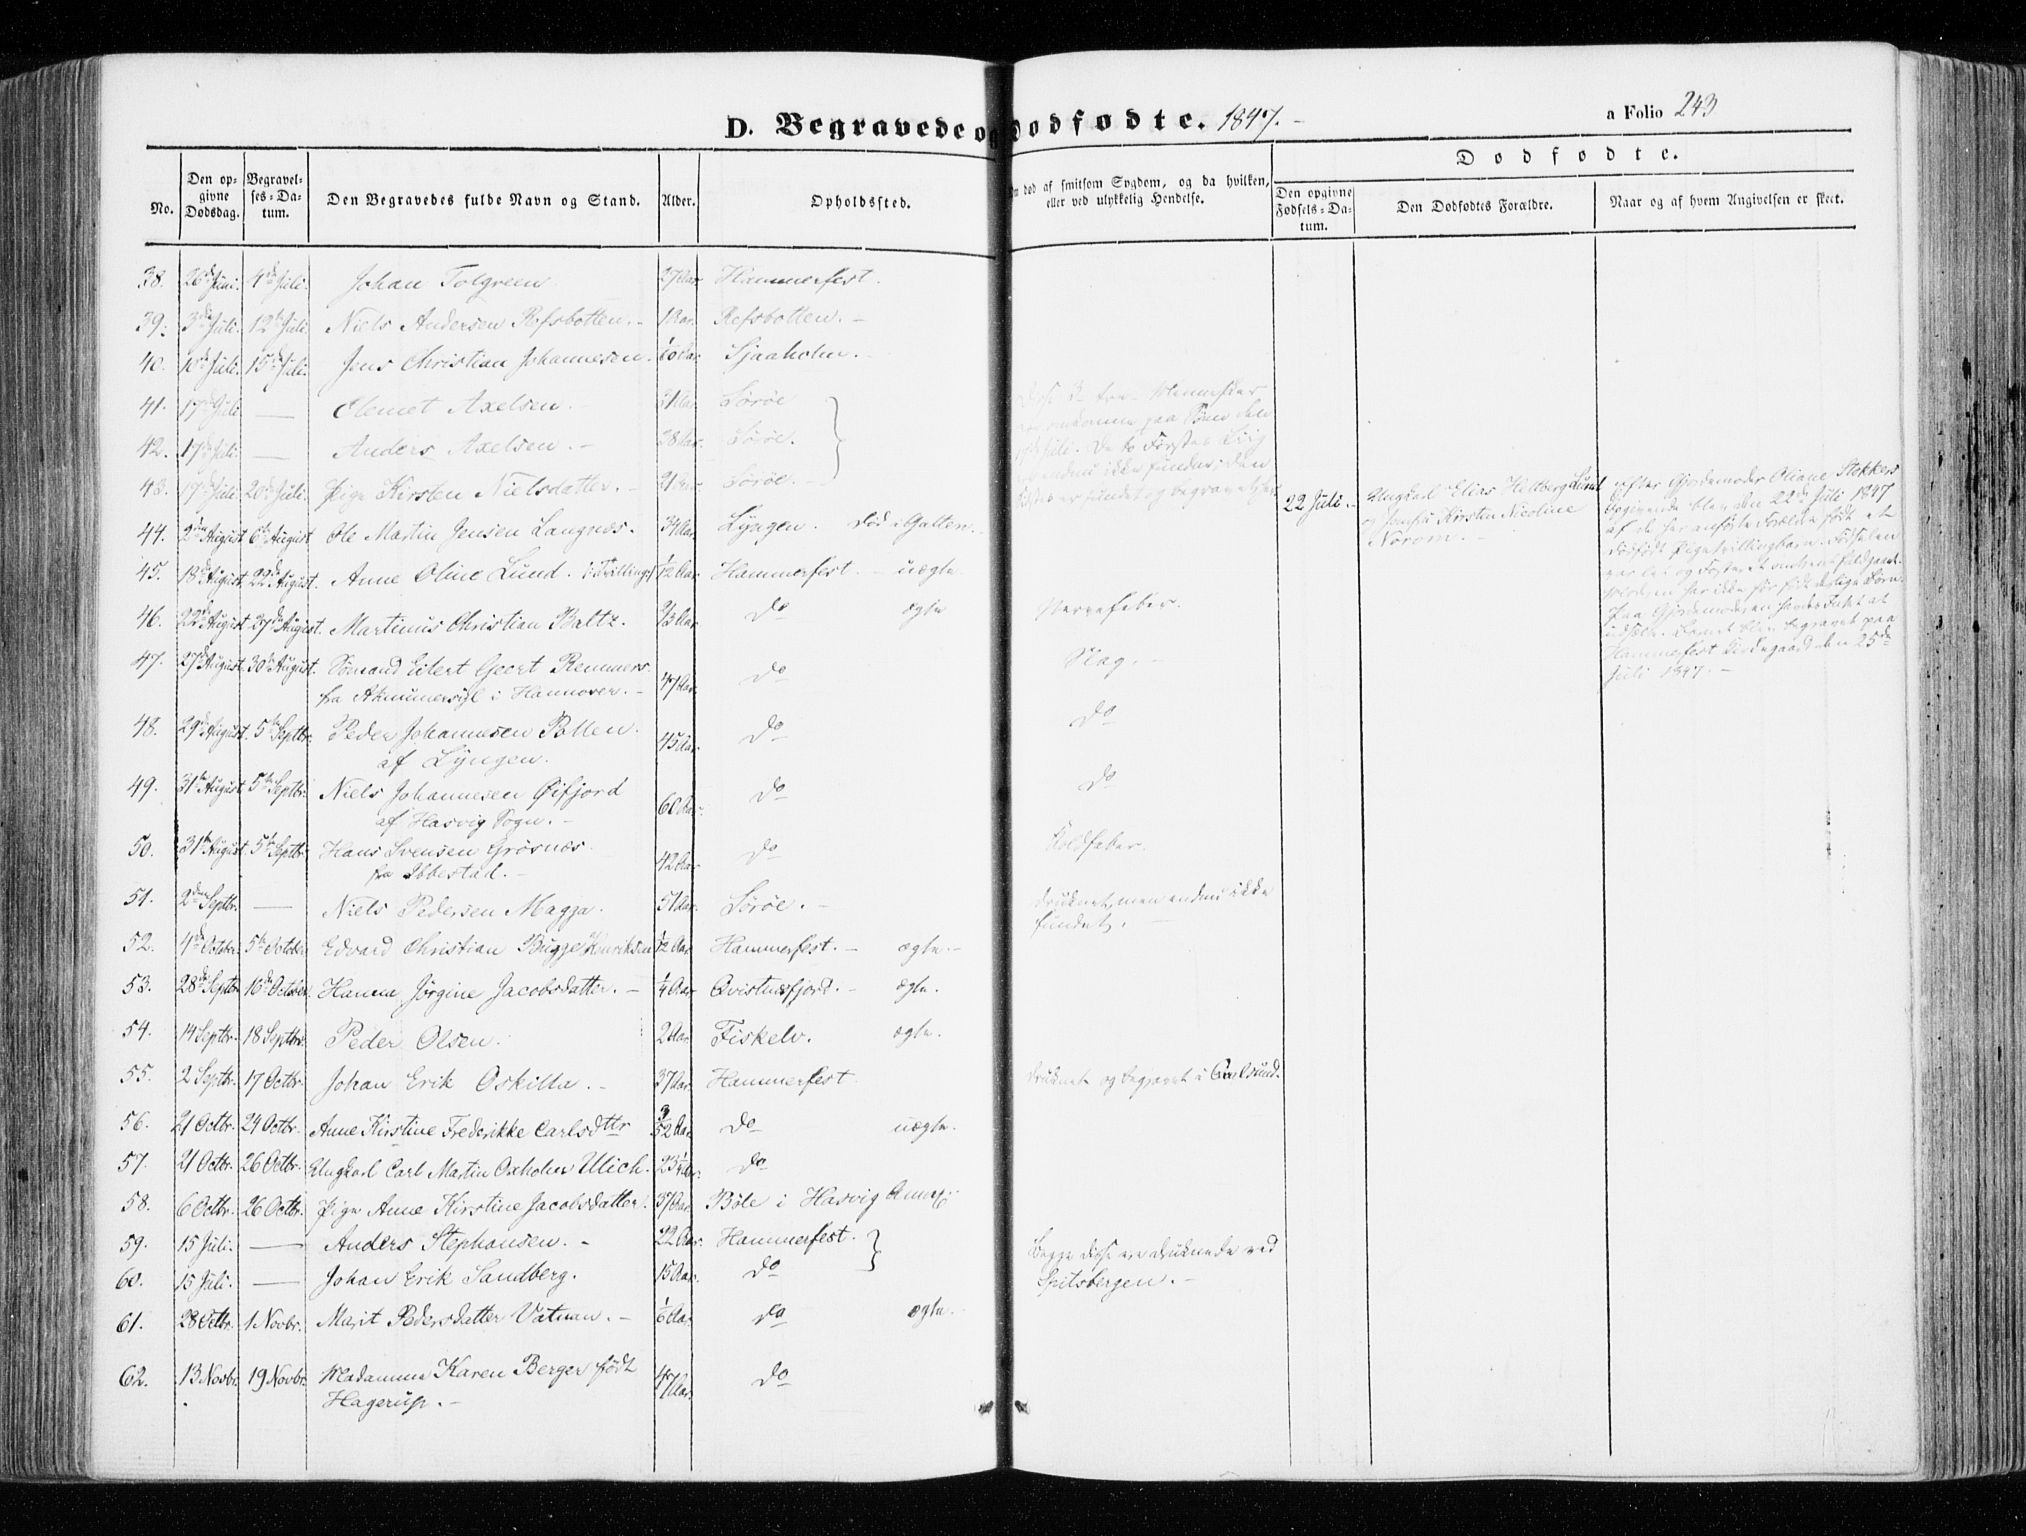 D. Begravede og Dodfødte. 1847.-
a Folio 243
No.
Den opgivne Dødsdag.
Begravelses-Datum.
Den Begravedes fulde Navn og Stand.
Alder.
Opholdssted.
død af smitsom Sygdom, og da hvilken, eller ved ulykkelig Hendelse.
Dødfødte.
Den opgivne Fødsels-Datum.
Den Dødfødtes Forældre.
Naar og af hvem Angivelsen er skeet.
38. 26de Juni. 4de Juli. Johan Tolgreen 27 Aar Hammerfest.
39. 3die Juli. 12te Juli. Niels Andersen Refsbotten. - 1 Aar. Refsbotten. -
40. 10de Juli. 15de Juli. Jens Christian Johannesen. Aar. Sjaaholm. -
41. 17de Juli — Clemet Axelsen. - 31 Aar Söröe
42. 17de Juli. — Anders Axelsen. - 28 Aar. Söröe.
43. 17de Juli. 20de Juli. Pige Kirsten Nielsdatter. - 21 Aar Söröe. -
Disse 3 Mennesker
omkomne paa Söen den
17de Juli. De to Förstes Liig
endnu ikke fundne; den
er fundet og begravet
44. 2den August 6te August Ole Martin Jensen Langnæs. 34 Aar Lyngen. död i Galten -
45. 18de August 22de August. Anne Oline Lund. (: Tvilling:) 1/2 Aar Hammerfest. - uægte
46. 22de August 27de August. Martinus Christian Baltz. 2/3 Aar. Do ægte Nervefeber.
47. 27de August. 30te August. Sömand Eilert Geert Remmers
fra i Hannover. - 47 Aar. Do Slag. -
48. 29de August. 5te Septbr. Peder Johannesen Pollen.
af Lyngen. 45 Aar. Do Do
49. 31te August 5te Septbr. Niels Johannesen Öifjord
af Hasvig Sogn. - 60 Aar. Do Do
50. 31te August 5te Septbr. Hans Svensen Grösnæs
fra Ibbestad. - 42 Aar Do Koldfeber.
51. 2den Septbr. — Niels Pedersen Magga. 51 Aar. Söröe. - druknet, men endnu ikke
fundet. -
52. 4de October 5te October Edvard Christian Bugge Henriksen 1/12 Aar Hammerfest. - ægte. -
53. 28de Septbr 16de October. Hanna Jörgine Jacobsdatter. - 1/4 Aar Qvistnesfjord. - ægte.
54. 14 Septbr. 18 Septbr. Peder Olsen. 2 Aar Fiskelv. ægte.
55. 2 Septbr. 17 Octbr. Johan Erik Oskilla. - 37 Aar. Hammerfest druknet og begravet i Carlsund.
56. 21 Octbr. 24 Octbr. Anne Kirstine Frederikke Carlsdttr 3/52 Aar Do uægte.
57. 21 Octbr. 26 Octbr. Ungkarl Carl Martin Oxholm Ulich. 23 1/4 Aar. Do
58. 6 Octbr. 26 Octbr. Pige Anne Kirstine Jacobsdatter. 37 Aar Böle i Hasvig Annex.
59. 15 Juli. — Anders Stephansen. - 22 Aar. Hammerfest.
60. 15 Juli. — Johan Erik Sandberg. 15 Aar. Do
Begge disse ere druknede ved
Spitsbergen. -
61. 28 Octbr. 1 Novbr. Marit Pedersdatter Vatnan. - 1/6 Aar. Do ægte.
62. 13 Novbr. 19 Novbr. Madamme Karen Berger född
Hagerup. - 47 Aar. Do
22 Juli. - Ungkarl Elias Hellberg Lund
og Jomfru Kirstin Nicoline
Norum. -
efter Gjordemoder Oliane Stokkers
Opgivende blev den 22de Juli 1847
af de her anförte Forældre födt et
dödfödt Pigetvillingbarn. Födselen
var let og Fosteret
Gjordemoderen
Barnet blev begravet paa
Hammerfest Kirkegaard den 25de
Juli 1847. -